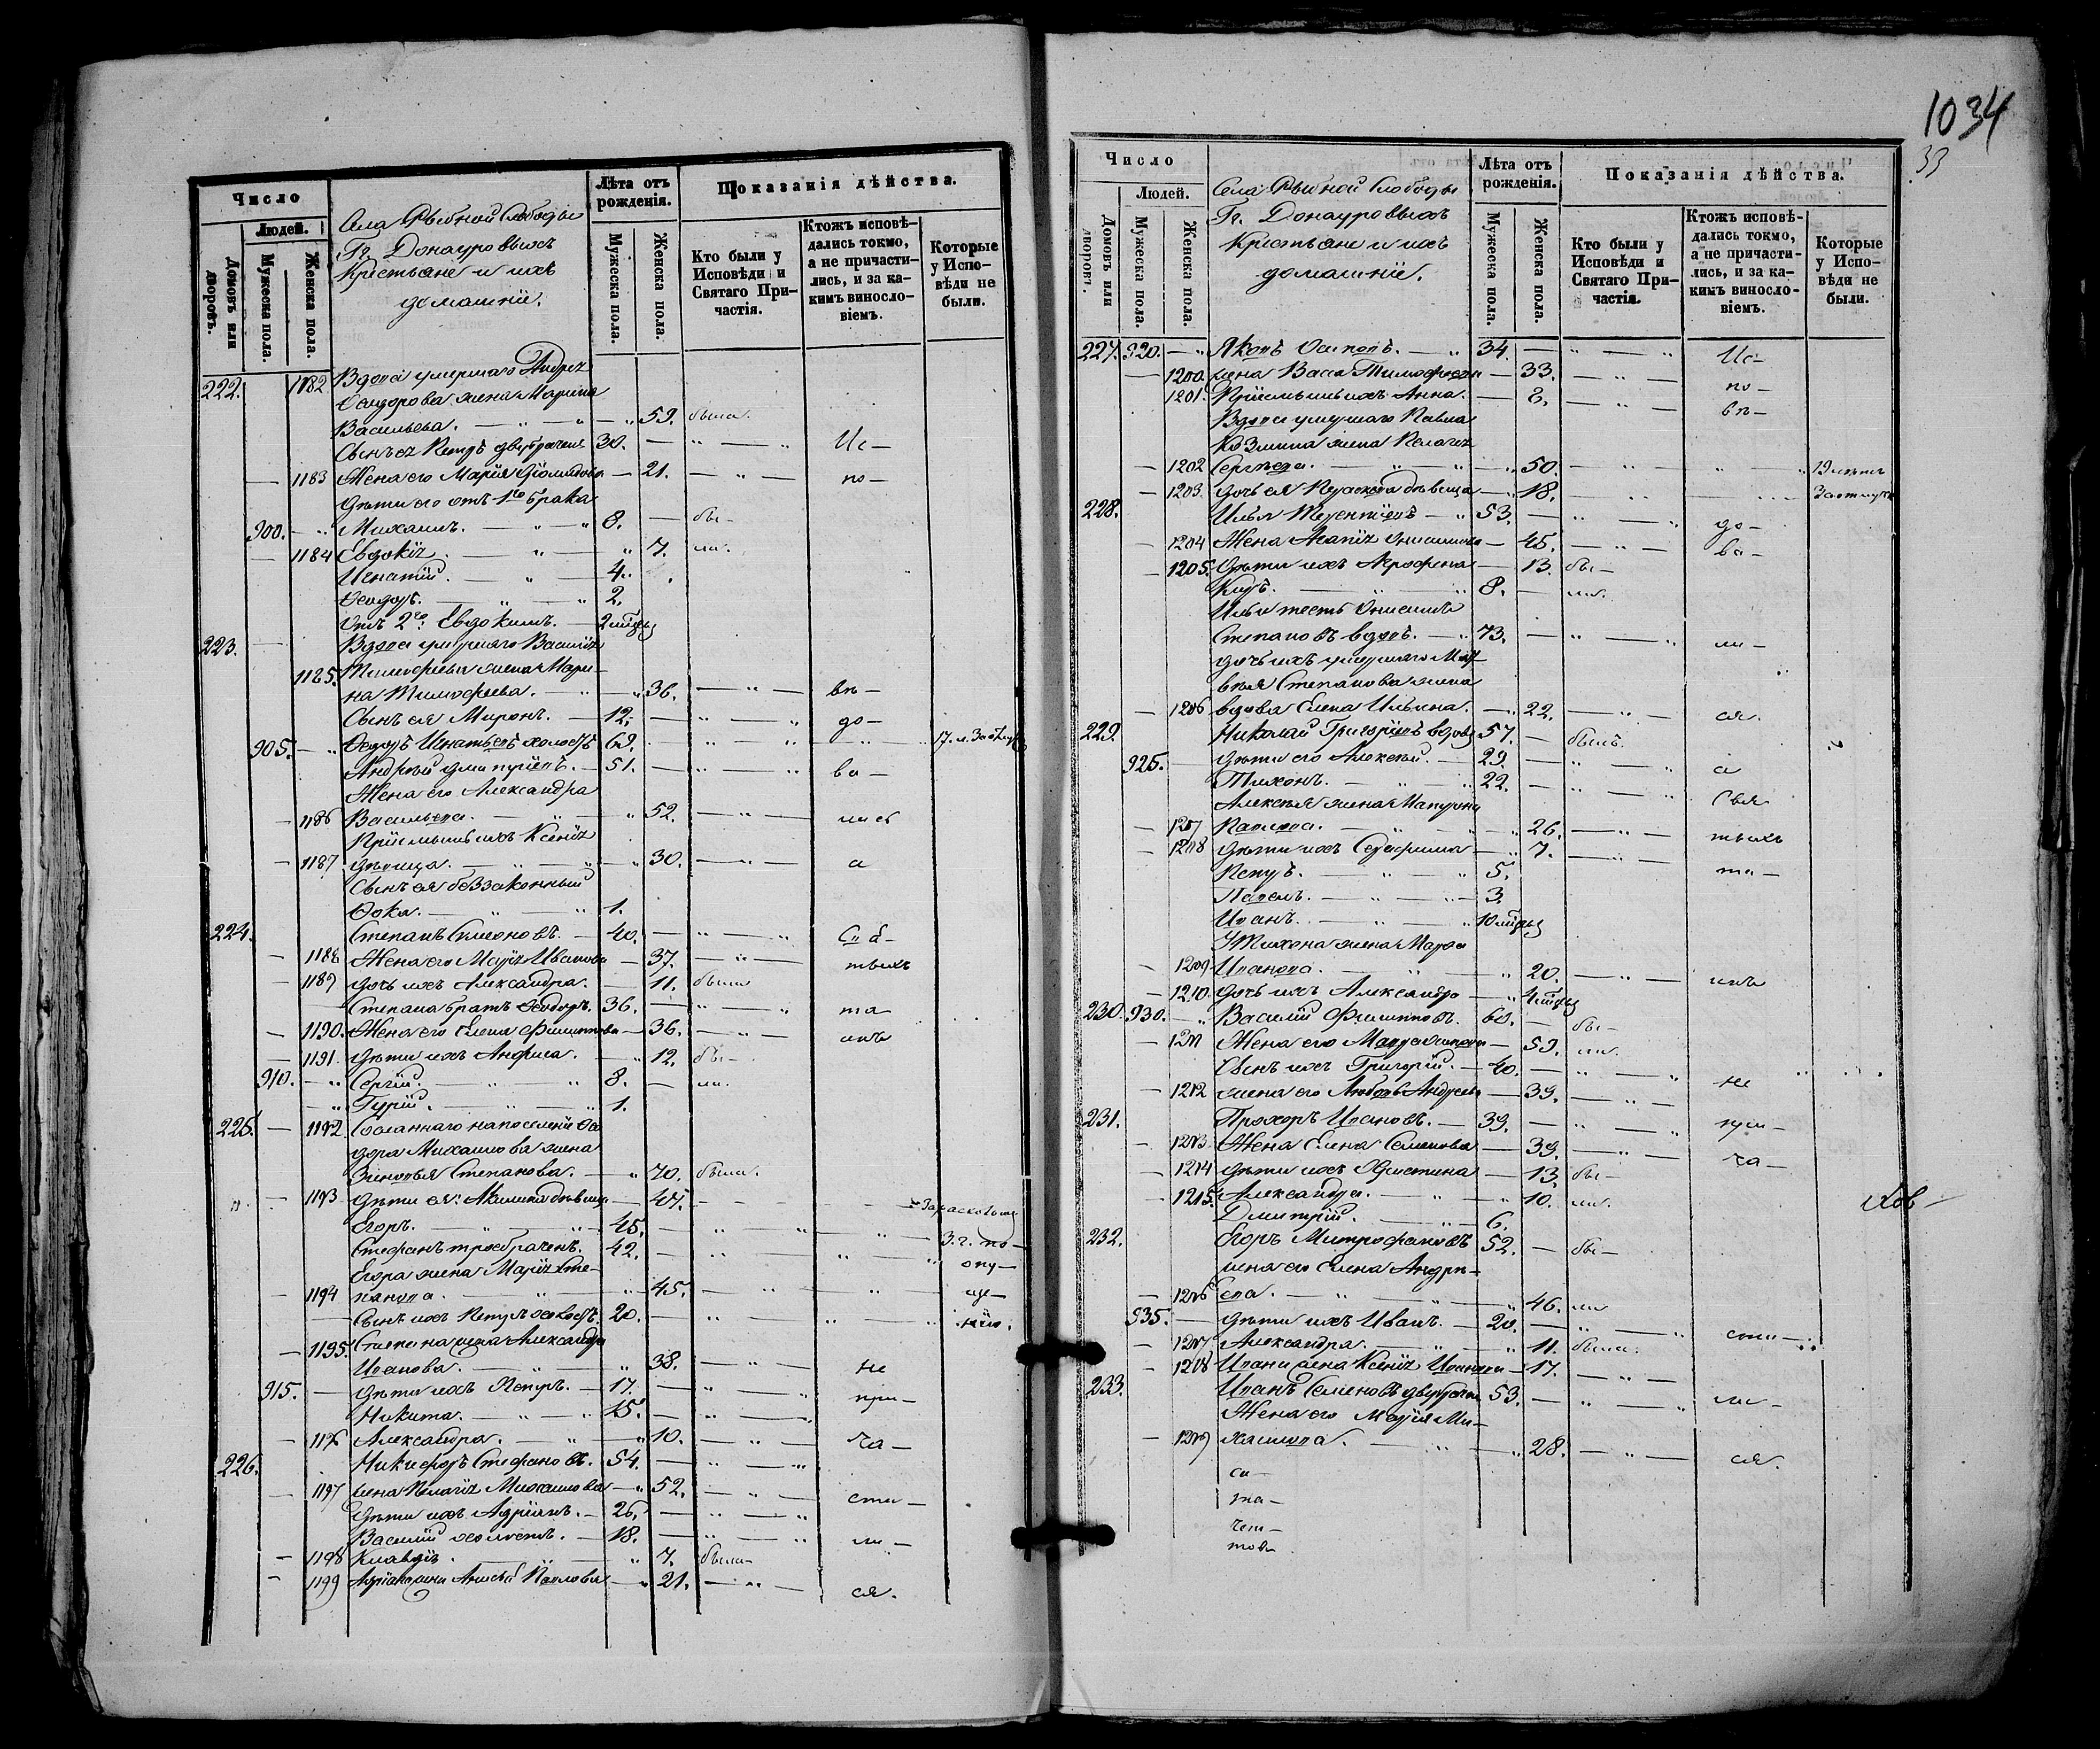 Число
Людей.
Домовъ или дворовъ.
Мужеска пола.
Женска пола.
Села Рыбной Слободы
Гг. Донауровыхъ
Крестьяне и ихъ
домашніе.
Лѣта отъ рожденія.
Мужеска пола.
Женска пола.
Показанія дѣйства.
Кто были у Исповѣди и Святаго Причастія.
Ктожъ исповѣдались токмо, а не причастились, и за какимъ винословіемъ.
Которые у Исповѣди не были.
222. 1182 Вдова умершаго Андрея
жена Марина
Васильева. — 59. была
Сынъ ея Петръ двубрачен 30. Ис—
1183 Жена его Марія — 21. по—
Дѣти его отъ 1го брака
900. Михаилъ. — 8. бы—
1184 Евдокія — 7. ли.
Игнатій. — 4.
Ѳеодоръ. — 2.
Отъ 2го Евдокимъ. — 2 мѣсяц
223. Вдова умершаго Василія
1185. Тимофеева жена Мари—
на Тимофеева. — 36. вѣ—
Сынъ ея Миронъ. — 12. до—
905. Ѳедоръ Игнатьевъ холостъ 69. 17. л. За
Андрей Дмитріевъ. — 51. ва—
Жена его Александра
1186 Васильева. — 52. лись
Пріемышъ ихъ Ксенія
1187 дѣвица. — 30. а
Сынъ ея беззаконный
Ѳока. — 1.
224. Степанъ Симеоновъ. — 40. Св.
1188 Жена его Марія Иванова — 37. тыхъ
1189 дочь ихъ Александра. — 11. была
Степана братъ Ѳеодоръ. 36. та
1190. Жена его Елена Филиппова — 36. инъ
1191. дѣти ихъ Анфиса. — 12. бы—
910. Сергій. — 8. ли.
Гурій. — 1.
225. 1192 Сосланнаго на поселеніе Ѳео
дора Михаилова жена
Зиновья Степанова. — 70. была.
1193 дѣти ея: Акилина дѣвица — 47. За расколом
Егоръ. — 45. З. г. по—
Стефанъ троебраченъ. 42. опу—
Егора жена Марія Сте—
1194 панова. — 45. ще—
Сынъ ихъ Петръ холостъ. 20. нію.
1195. Степана жена Александра
Иванова. — 38. не
915. дѣти ихъ Петръ. — 17. при—
Никита. — 15.
1196 Александра. — 10. ча—
226. Никифоръ Стефановъ. 54.
1197 жена Пелагія Михаилова — 52. сти—
дѣти ихъ Адріанъ. — 26.
Василій холостъ. — 18. ли—
1198 Клавдія. — 7. была—
1199 Адріана жена Анисья Павлова — 21. ся.
1034
33
Число
Людей.
Домовъ или дворовъ.
Мужеска пола.
Женска пола.
Села Рыбной Слободы
Гг. Донауровыхъ
Крестьяне и ихъ
домашніе.
Лѣта отъ рожденія.
Мужеска пола.
Женска пола.
Показанія дѣйства.
Кто были у Исповѣди и Святаго Причастія.
Ктожъ исповѣдались токмо, а не причастились, и за какимъ винословіемъ.
Которые у Исповѣди не были.
227. 920. Яковъ Осиповъ. — 34. Ис—
1200. жена Васса Тимофеева — 33. по—
1201. Пріемышъ ихъ Анна. — 8. вѣ—
Вдова умершаго Павла
Козмина жена Пелагія
1202 Сергѣева. — 50.
1203. дочь ея дѣвица — 18.
228. Илья Терентіевъ — 53. до—
1204 Жена Агапія Онисимова — 45. ва—
1205. Дѣти ихъ Агрофена — 13. бы—
Киръ. — 8. ли.
Ильи тесть Онисимъ
Степановъ вдовъ. — 73. ли—
дочь ихъ умершаго Мат—
вея Степанова жена
1206 вдова Елена Ильина. — 22. ся.
229. Николай Григоріевъ вдовъ 57. былъ.
925. дѣти его Алексей. — 29. а
Тихонъ. — 22. Свя
Алексея жена Матрона
1207 Павлова. — 26. тыхъ
1208 дѣти ихъ Серафима — 7. та—
Петръ. — 5.
Павелъ. — 3.
Иванъ. — 10 мѣсяц
У Тихона жена Марѳа
1209 Иванова. — 20. инъ
1210. дочь ихъ Александра — 4 мѣсяц
230. 930. Василій Филипповъ. 60. бы—
1211 Жена его — 59. ли.
Сынъ ихъ Григорій. — 40. не
1212 жена его Любовь Андреева — 39.
231. Прохоръ Ивановъ. — 39. при—
1213 Жена Елена Семенова — 39. ча—
1214 дѣти ихъ Христина — 13. бы—
1215. Александра. — 10. ли.
Дмитрій. — 6.
232. Егоръ Митрофановъ 52. бы—
жена его Елена Андре—
1216 ева. — 46. ли
935. дѣти ихъ Иванъ. — 20. сти—
1217 Александра. — 11. была.
1218 Ивана жена Ксенія Иванова — 17.
233. Иванъ Семеновъ двубрачен 53. ли—
Жена его Марія Ми—
1219 хаилова. — 28. ся.
са—
ма—
чет—